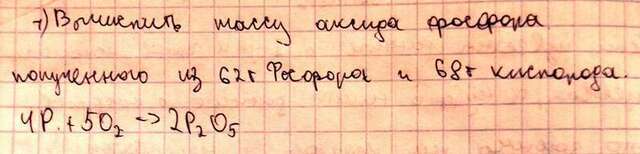 7) Вычислить массу оксида фосфора
полученного из 62г Фосфора и 68г кислорода.
4P + 5O₂ -> 2P₂O₅